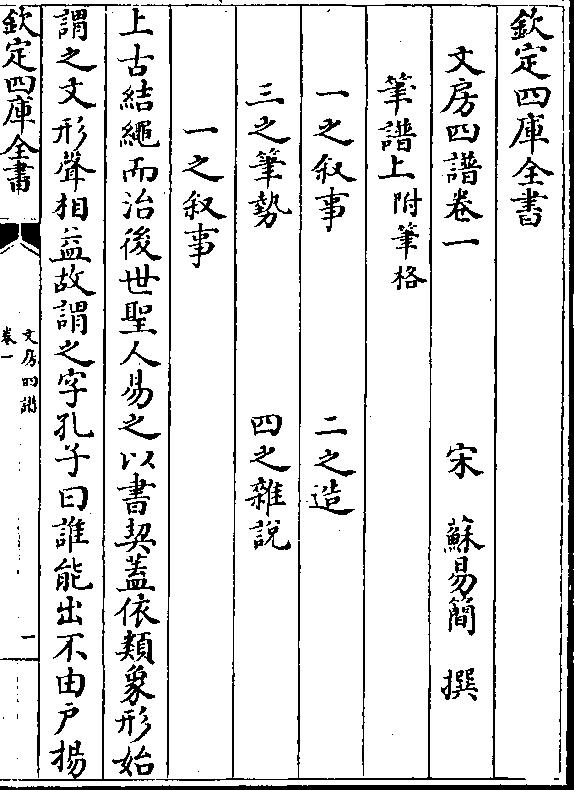 欽定四庫全書
文房四譜卷一
宋 蘇易簡 撰
筆譜上 附筆格
一之叙事 二之造
三之筆勢 四之雜說
一之叙事
上古結繩而治後世聖人易之以書契蓋依類象形始
謂之文形聲相益故謂之字孔子曰誰能出不由戶揚
欽定四庫全書
文房四譜
卷一
一